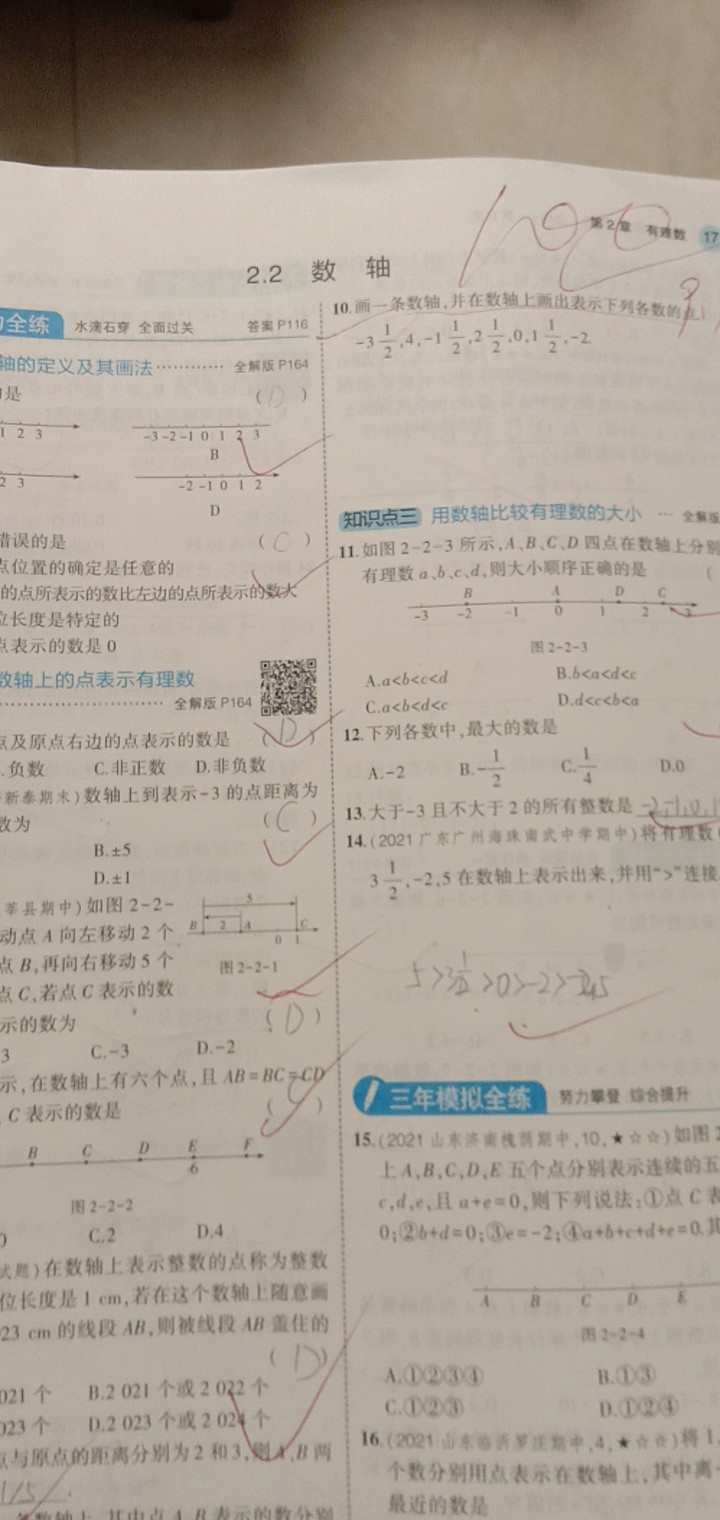 第2章 有理数 17
2.2 数 轴
全练 水滴石穿 全面过关 答案P116
轴的定义及其画法 ………… 全解版P164
是 ( D )
1 2 3
-3 -2 -1 0 1 2 3
B
2 3
-2 -1 0 1 2
D
错误的是 ( C )
点位置的确定是任意的
的点所表示的数比左边的点所表示的数大
位长度是特定的
点表示的数是0
数轴上的点表示有理数
………………… 全解版P164
点及原点右边的点表示的数是 ( D )
.负数 C.非正数 D.非负数
新泰期末)数轴上到表示-3的点距离为
数为 ( C )
B.±5
D.±1
莘县期中)如图2-2-
动点A向左移动2个
点B,再向右移动5个
点C,若点C表示的数
示的数为 ( D )
5
B 2 A 0 1 C
图2-2-1
3 C.-3 D.-2
示,在数轴上有六个点,且AB=BC=CD
C表示的数是 ( C )
B C D E F
6
图2-2-2
0 C.2 D.4
试题)在数轴上表示整数的点称为整数
位长度是1 cm,若在这个数轴上随意画
23 cm的线段AB,则被线段AB盖住的
( D )
021个 B.2 021个或2 022个
023个 D.2 023个或2 024个
点与原点的距离分别为2和3,则A、B两
1/5
条数轴上,其中点A、B表示的数分别
100
10.画一条数轴,并在数轴上画出表示下列各数的点
?
-3 1/2,4,-1 1/2,2 1/2,0,1 1/2,-2.
知识点三 用数轴比较有理数的大小 … 全解版
11.如图2-2-3所示,A、B、C、D四点在数轴上分别
有理数a、b、c、d,则大小顺序正确的是 (
B A D C
-3 -2 -1 0 1 2 3
图2-2-3
A.a<b<c<d B.b<a<d<c
C.a<b<d<c D.d<c<b<a
12.下列各数中,最大的数是
A.-2 B.-1/2 C.1/4 D.0
13.大于-3且不大于2的所有整数是 -2,-1,0,1
14.(2021广东广州海珠南武中学期中)将有理数
3 1/2,-2,5在数轴上表示出来,并用“>”连接
5>3 1/2>0>-2>
三年模拟全练 努力攀登 综合提升
15.(2021山东济南槐荫期中,10,★☆☆)如图2
上A,B,C,D,E五个点分别表示连续的五
c,d,e,且a+e=0,则下列说法:①点C表
0;②b+d=0;③e=-2;④a+b+c+d+e=0.其
A B C D E
图2-2-4
A.①②③④ B.①③
C.①②③ D.①②④
16.(2021山东临沂罗庄期中,4,★☆☆)将1,
个数分别用点表示在数轴上,其中离
最近的数是